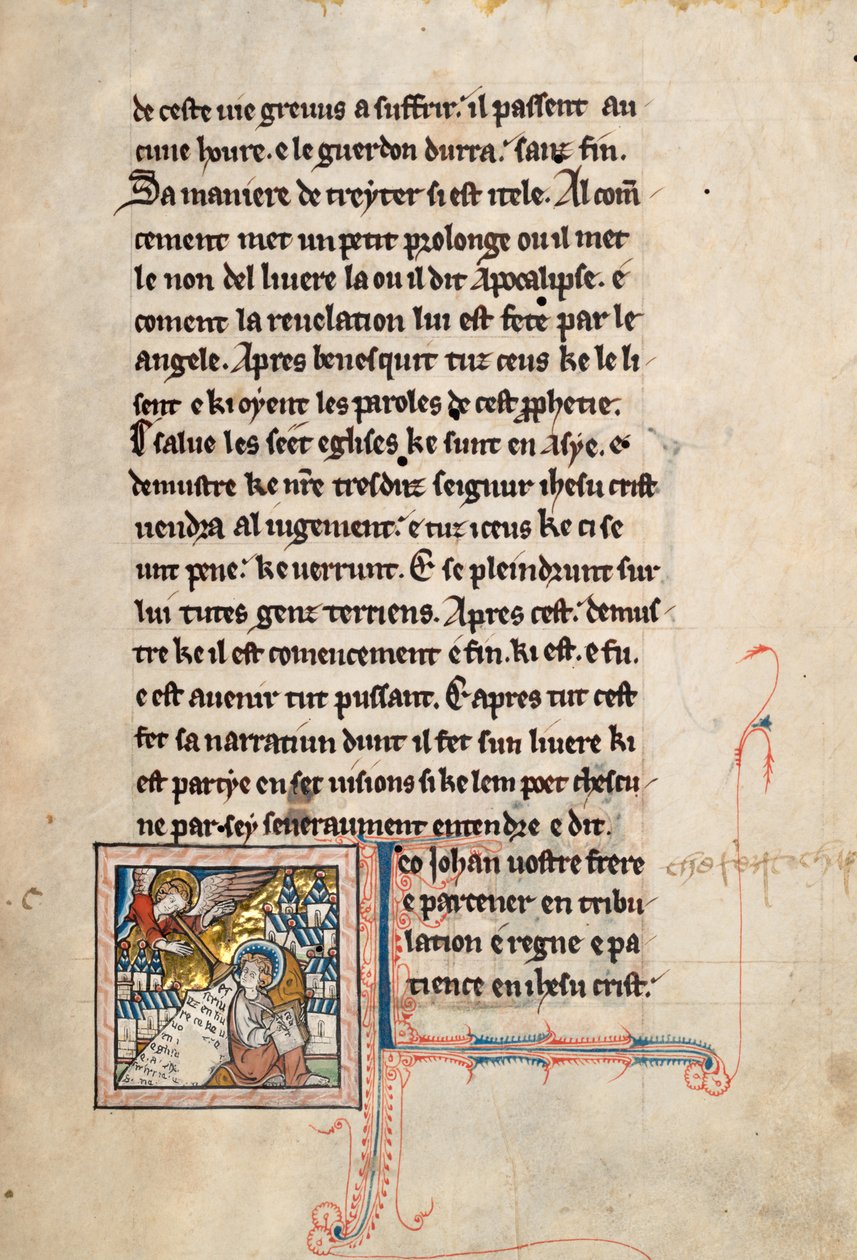 de ceste uie greuus a suffrir. il passent au
cune houre. e le guerdon durra. sanz fin.
Sa maniere de treyter si est itele. Al com̄
cement met un petit prolonge ou il met
le non del liuere la ou il dit Apocalipse. e
coment la reuelation lui est fete par le
angele. Apres benesquit tuz ceus ke le li
sent e ki oyent les paroles de cest ꝓphetie.
salue les seet eglises ke sunt en asye. e
demustre ke nr̄e tresduz seignur ihesu crist
uendra al iugement. e tuz iceus ke ci se
unt pene. ke uerrunt. E se pleindrunt sur
lui tutes genz terriens. Apres cest. demus
tre ke il est comencement e fin. ki est. e fu.
e est auenir tut pussant. E apres tut cest
fet sa narratiun dunt il fet sun liuere ki
est partye en set uisions si ke lem poet chescu
ne par sey seueraument entendre e dit.
I
eo Johan uostre frere
e partener en tribu
lation e regne e pa
tience en ihesu crist.